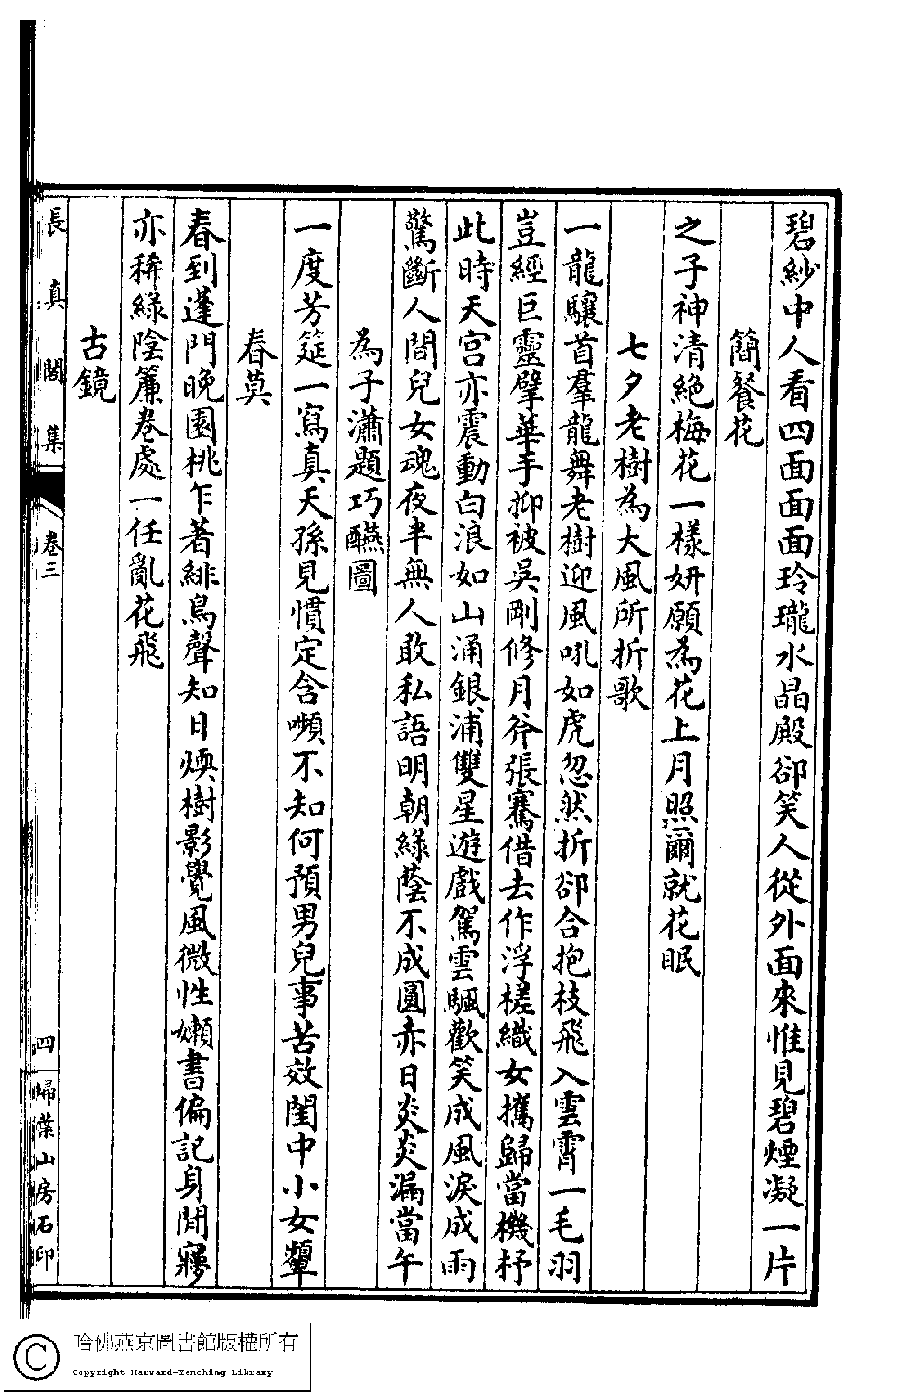 碧紗中人看四面面面玲瓏水晶殿卻笑人從外面來惟見碧煙凝一片
簡餐花
之子神清絶梅花一樣妍願為花上月照爾就花眠
七夕老樹為大風所折歌
一龍驤首羣龍舞老樹迎風吼如虎忽然折卻合抱枝飛入雲霄一毛羽
豈經巨靈擘華手抑被吳剛修月斧張騫借去作浮槎織女攜歸當機杼
此時天宮亦震動白浪如山涌銀浦雙星遊戲駕雲颿歡笑成風淚成雨
驚斷人間兒女魂夜半無人敢私語明朝綠蔭不成圓赤日炎炎漏當午
為子瀟題巧醼圖
一度芳筵一寫真天孫見慣定含嚬不知何預男兒事苦效閨中小女顰
春莫
春到蓬門晚園桃乍著緋鳥聲知日煥樹影覺風微性嬾書偏記身閒寢
亦稀綠陰簾卷處一任亂花飛
古鏡
長真閣集
卷三
四
埽葉山房石印
哈佛燕京圖書館版權所有
Copyright Harvard-Yenching Library